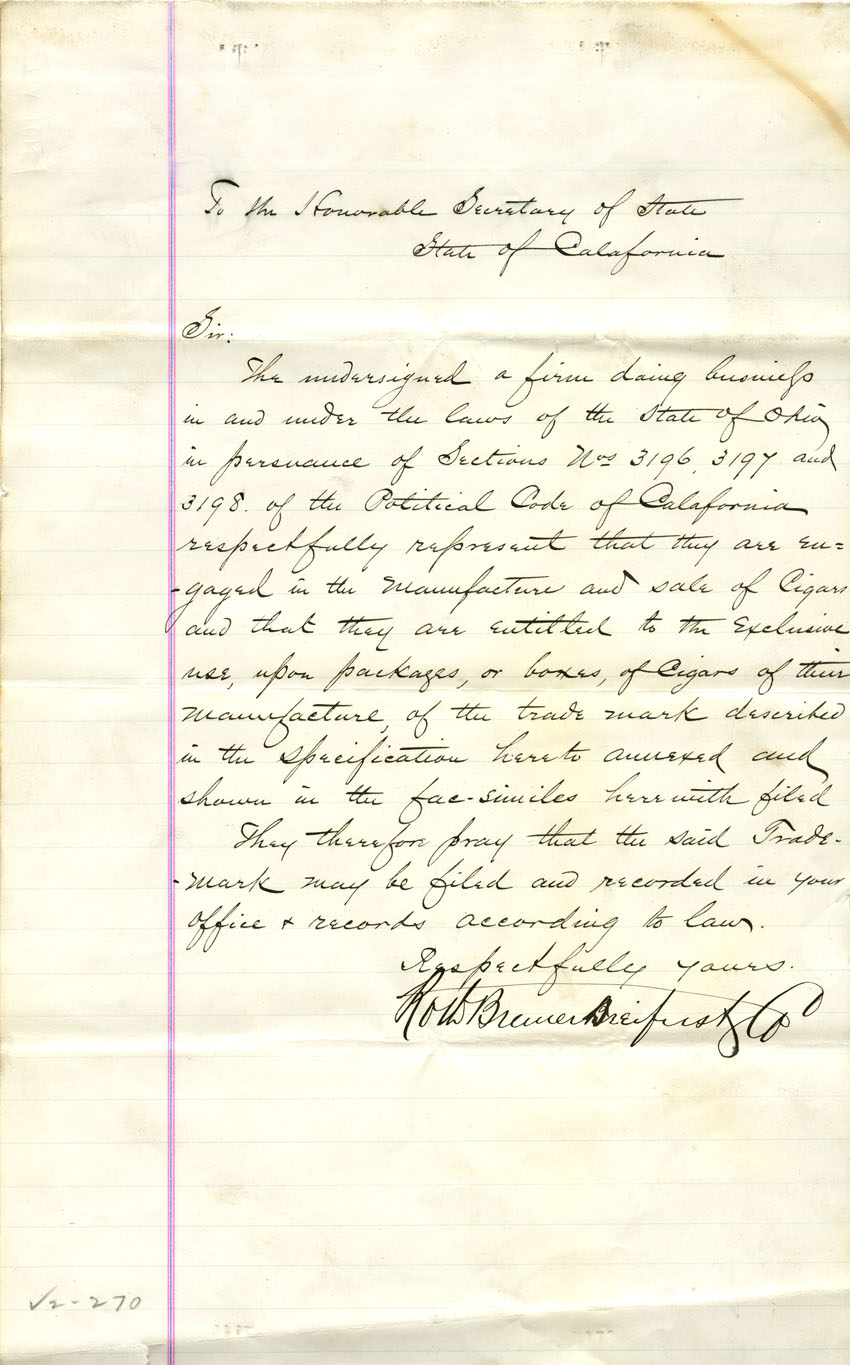 To the Honorable Secretary of State
State of Calafornia
Sir:
The undersigned a firm doing business
in and under the laws of the State of Ohio
in persuance of Sections Nos 3196, 3197 and
3198. of the Political Code of Calafornia
respectfully represent that they are en=
-gaged in the manufacture and sale of Cigars
and that they are entitled to the Exclusive
use, upon packages, or boxes, of Cigars of their
manufacture, of the trade mark described
in the specification hereto annexed and
shown in the fac-similes herewith filed
They therefore pray that the said Trade-
-mark may be filed and recorded in your
office & records according to law.
Respectfully yours.
Roth Bremer &
V2-270